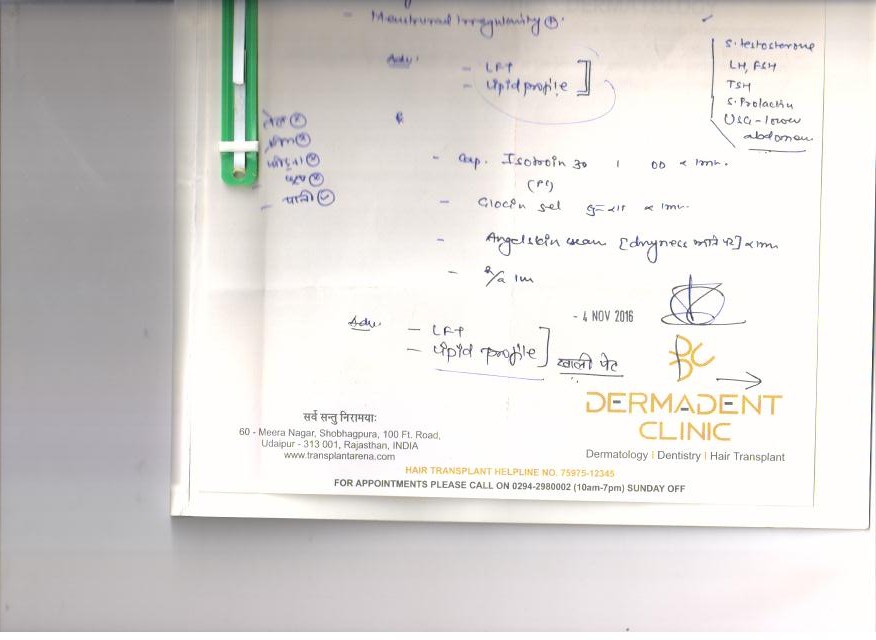 - Menstrual Irregularity
Adv:
- LFT
- Lipid profile
S. testosterone
LH, FSH
TSH
S. Prolactin
USG - lower
abdomen
- पानी
- Cap. Isotroin 30 1
(PC)
- Glocin gel
- Angelskin cream [dryness
- 1m
Adv.
- LFT
- Lipid profile
खाली पेट
- 4 NOV 2016
DC
DERMADENT
CLINIC
Dermatology | Dentistry | Hair Transplant
सर्व सन्तु निरामयाः
60 - Meera Nagar, Shobhagpura, 100 Ft. Road,
Udaipur - 313 001, Rajasthan, INDIA
www.transplantarena.com
HAIR TRANSPLANT HELPLINE NO. 75975-12345
FOR APPOINTMENTS PLEASE CALL ON 0294-2980002 (10am-7pm) SUNDAY OFF